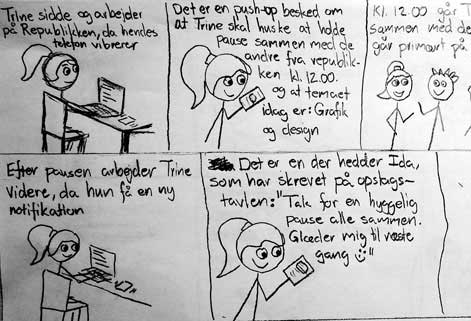 Trine sidde og arbejder
på Republikken, da hendes
telefon vibrerer
Det er en push-op besked om
at Trine skal huske at holde
pause sammen med de
andre fra republik-
ken kl. 12.00.
og at temaet
idag er: Grafik
og design
Kl. 12.00 går T
sammen med de
går primært på
Efter pausen arbejder Trine
videre, da hun få en ny
notifikation
Det er en der hedder Ida,
som har skrevet på opslags-
tavlen: "Tak for en hyggelig
pause alle sammen.
Glæder mig til næste
gang